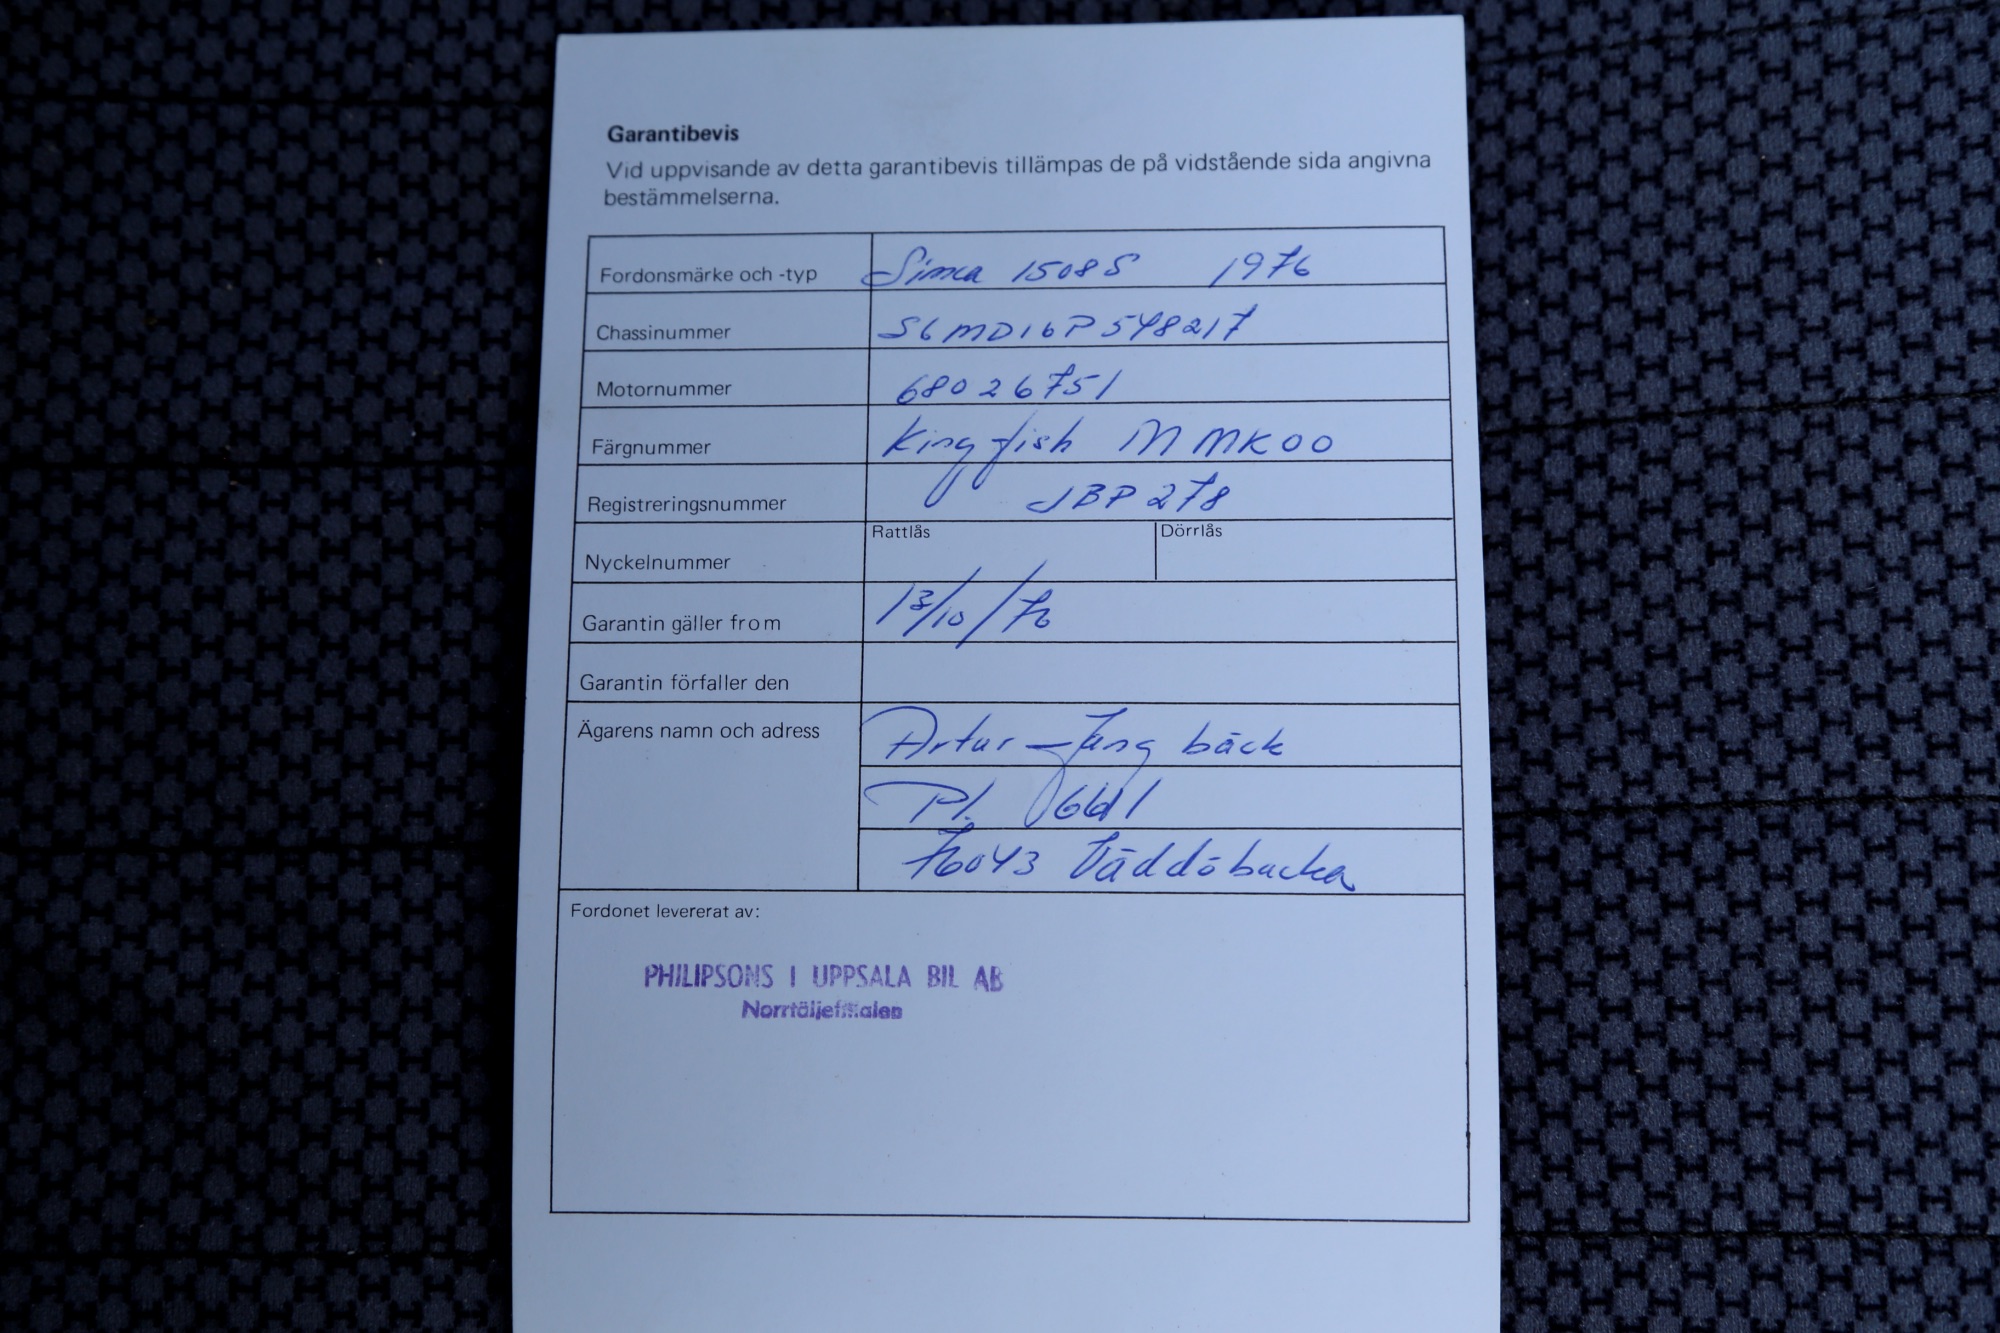 Garantibevis
Vid uppvisande av detta garantibevis tillämpas de på vidstående sida angivna
bestämmelserna.
Fordonsmärke och -typ Simca 1508S 1976
Chassinummer S6MD16P548217
Motornummer 68026751
Färgnummer Kingfish M MK00
Registreringsnummer JBP 278
Nyckelnummer Rattlås Dörrlås
Garantin gäller from 13/10/76
Garantin förfaller den
Ägarens namn och adress Artur bäck
Pl.
76043 Väddöbacka
Fordonet levererat av:
PHILIPSONS I UPPSALA BIL AB
Norrtäljefilialen